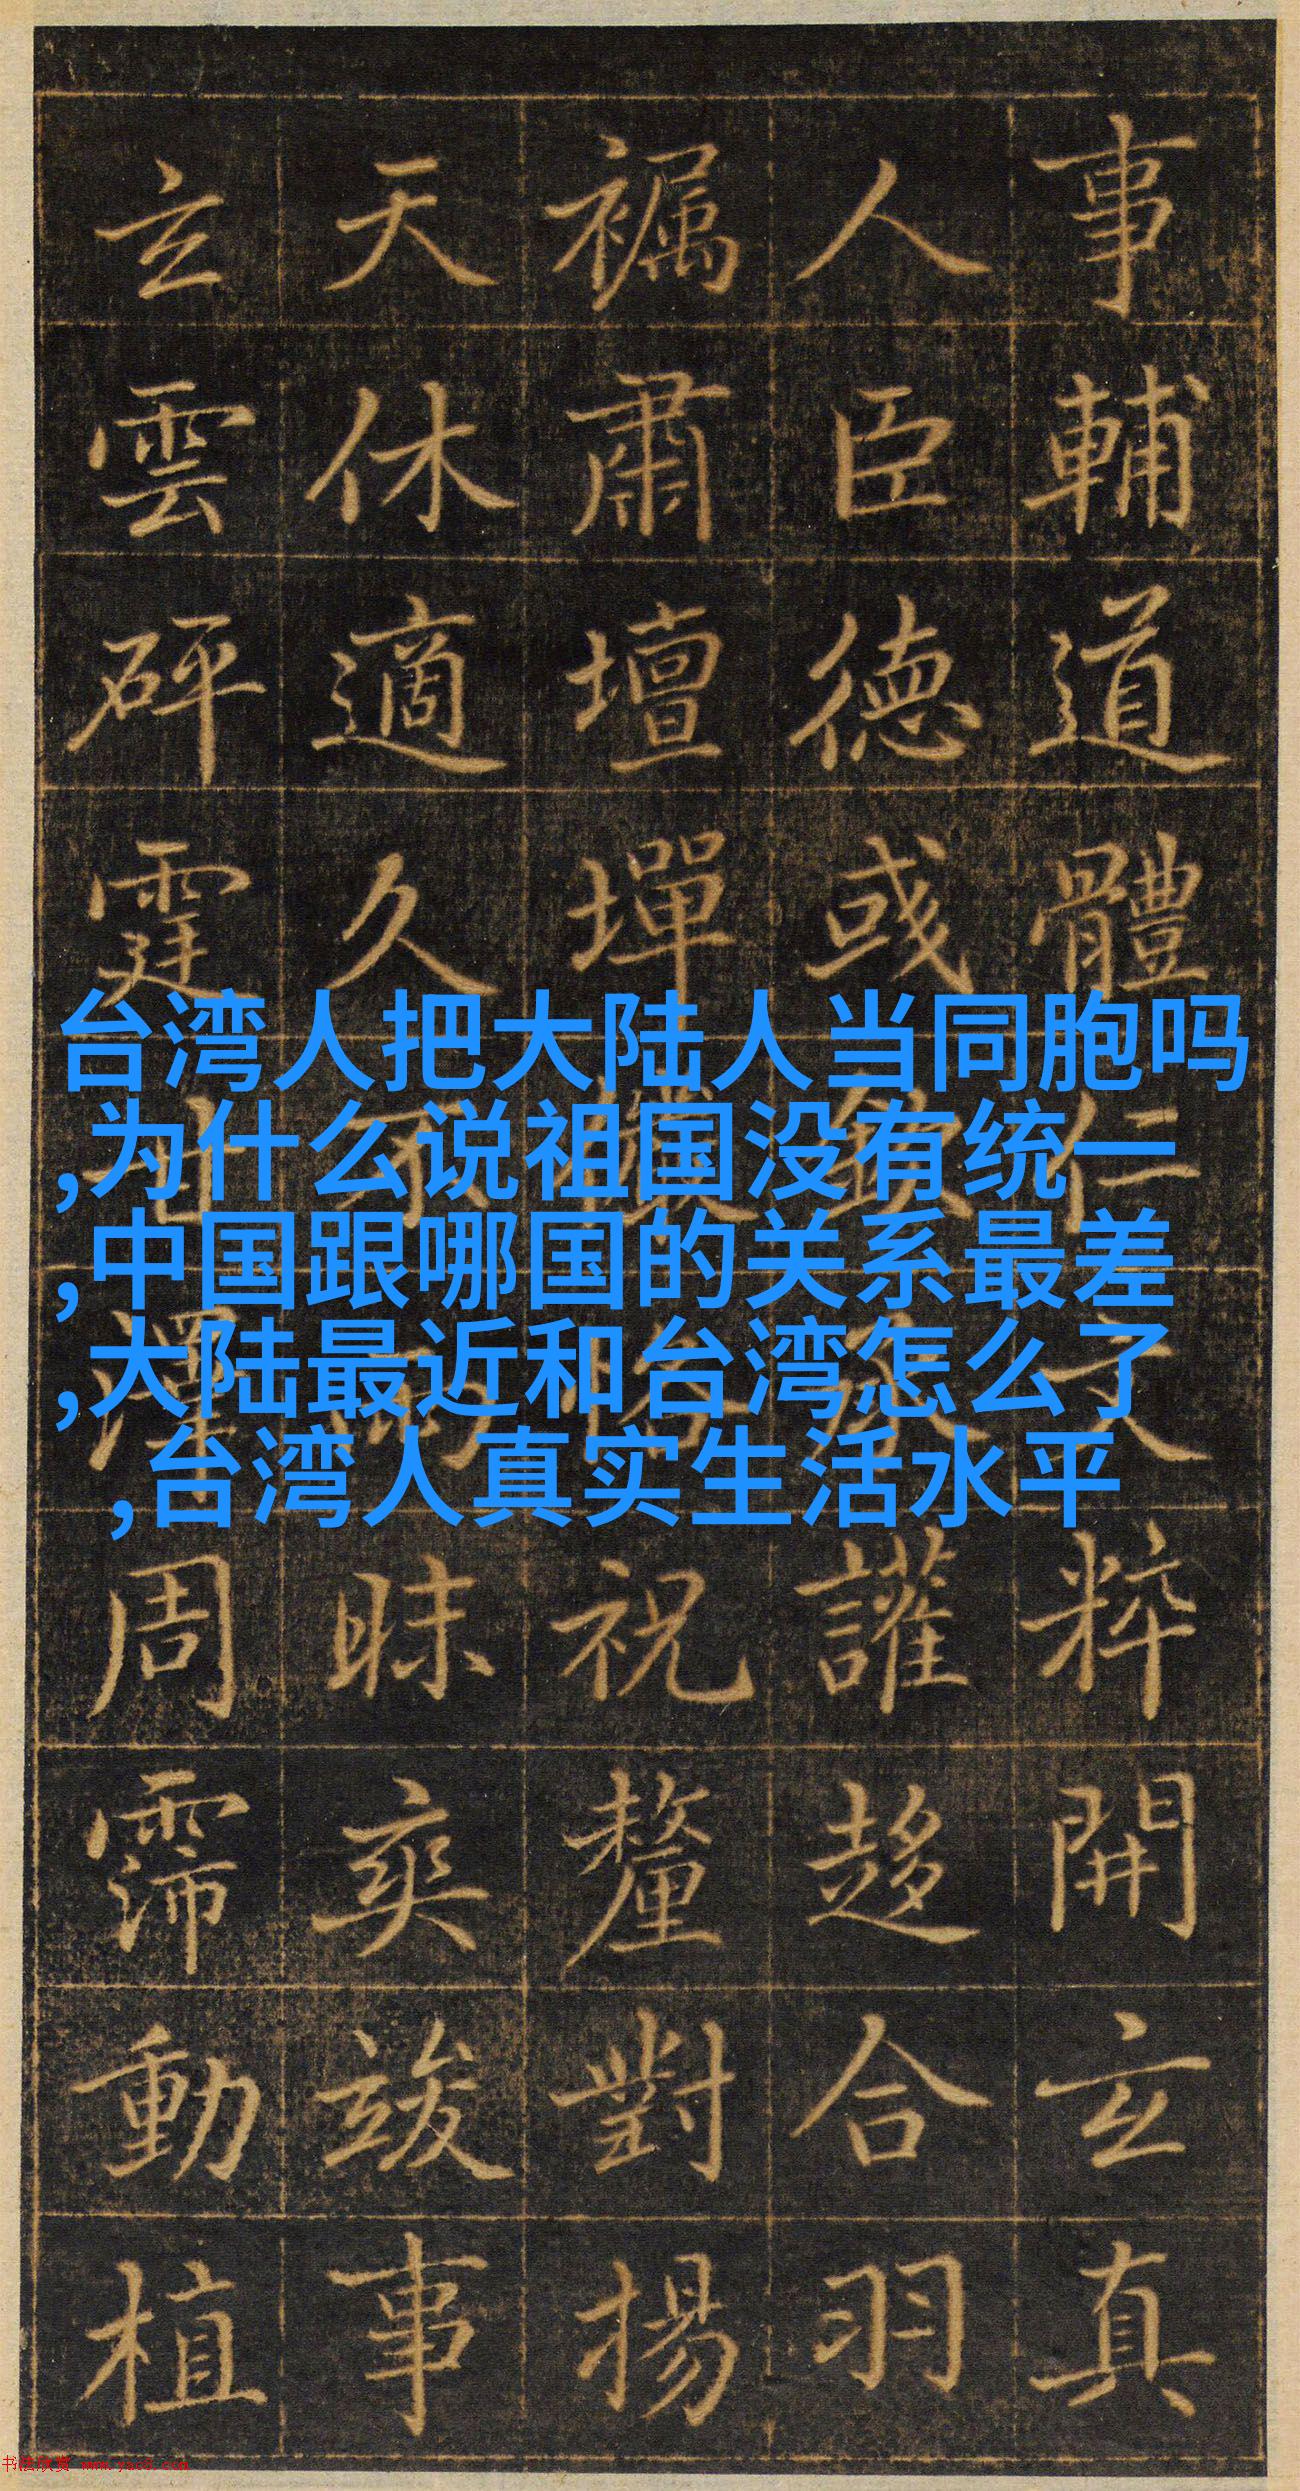 事輔道體仁文粹開玄真
人臣德彧讙趍合羽
肅壇墠祝釐對揚
天休適久昧爽竣事
玄雲砰霆澤周霈動植
台湾人把大陆人当同胞吗
,为什么说祖国没有统一
,中国跟哪国的关系最差
,大陆最近和台湾怎么了
,台湾人真实生活水平
书法欣赏 www.yac8.com